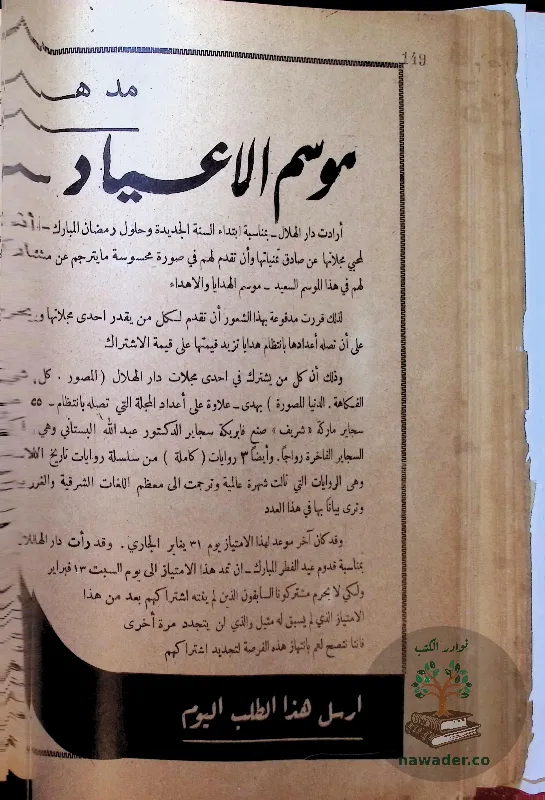 149
مد هـ
موسم الاعياد
أرادت دار الهلال ـ بمناسبة ابتداء السنة الجديدة وحلول رمضان المبارك ـ
لمحبي مجلاتها عن صادق تمنياتها وأن تقدم لهم في صورة محسوسة ما يترجم عن
لهم في هذا الموسم السعيد ـ موسم الهدايا والاهداء
لذلك قررت مدفوعة بهذا الشعور أن تقدم لكل من يقدر احدى مجلاتها
على أن تصله أعدادها بانتظام هدايا تزيد قيمتها على قيمة الاشتراك
وذلك أن كل من يشترك في احدى مجلات دار الهلال ( المصور . كل
الفكاهة . الدنيا المصورة ) يهدى ـ علاوة على أعداد المجلة التي تصله بانتظام ـ ٥٥
سجاير ماركة « شريف » صنع فابريكة سجاير الدكتور عبد الله البستاني وهي
السجاير الفاخرة رواجاً . وأيضاً ٣ روايات ( كاملة ) من سلسلة روايات تاريخ
وهى الروايات التي نالت شهرة عالمية وترجمت الى معظم اللغات الشرقية
وترى بياناً بها في هذا العدد
وقد كان آخر موعد لهذا الامتياز يوم ٣١ يناير الجاري . وقد رأت دار
بمناسبة قدوم عيد الفطر المبارك ـ ان تمد هذا الامتياز الى يوم السبت ١٣ فبراير
ولكي لا يحرم مشتركونا السابقون الذين لم يفته اشتراكهم بعد من هذا
الامتياز الذي لم يسبق له مثيل والذي لن يتجدد مرة أخرى
فاننا ننصح لهم بانتهاز هذه الفرصة لتجديد اشتراكهم
ارسل هذا الطلب اليوم
نوادر الكتب
nawader.co